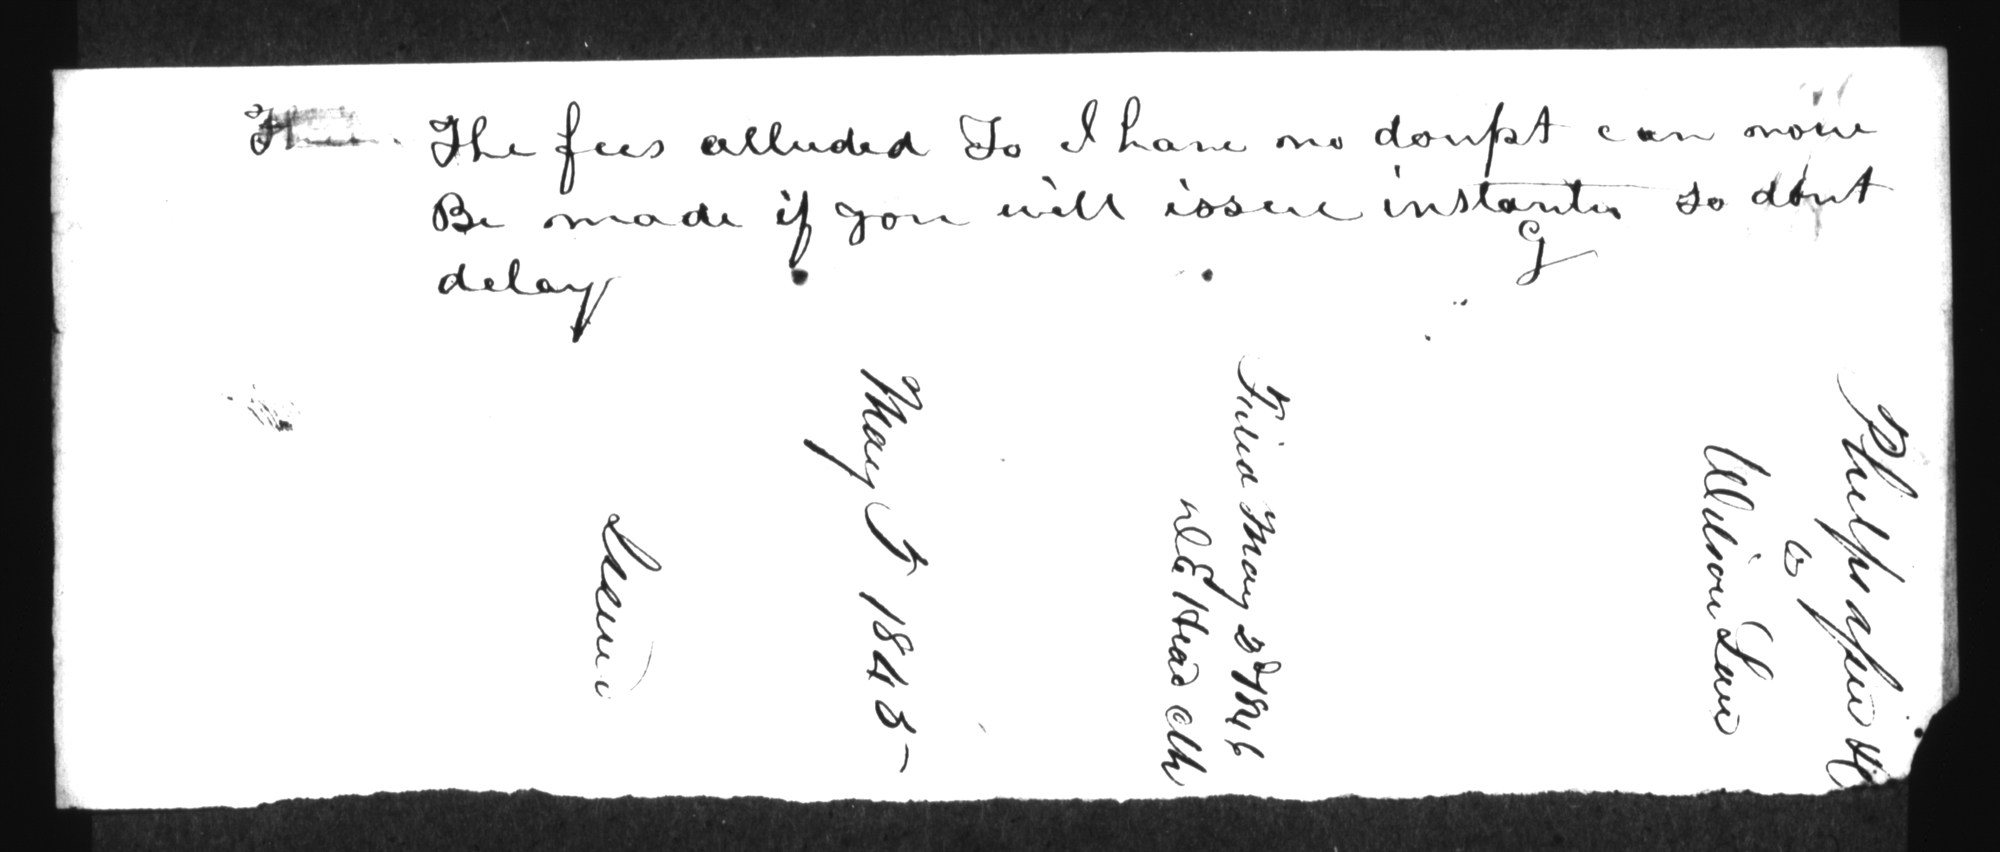 The fees alluded To I have no doupt can now
Be made if you will issue instanter so dont
delay
G
May 5 1845
Filed May 2d 1846
Head Clk
Phelps
vs
Wilson Law